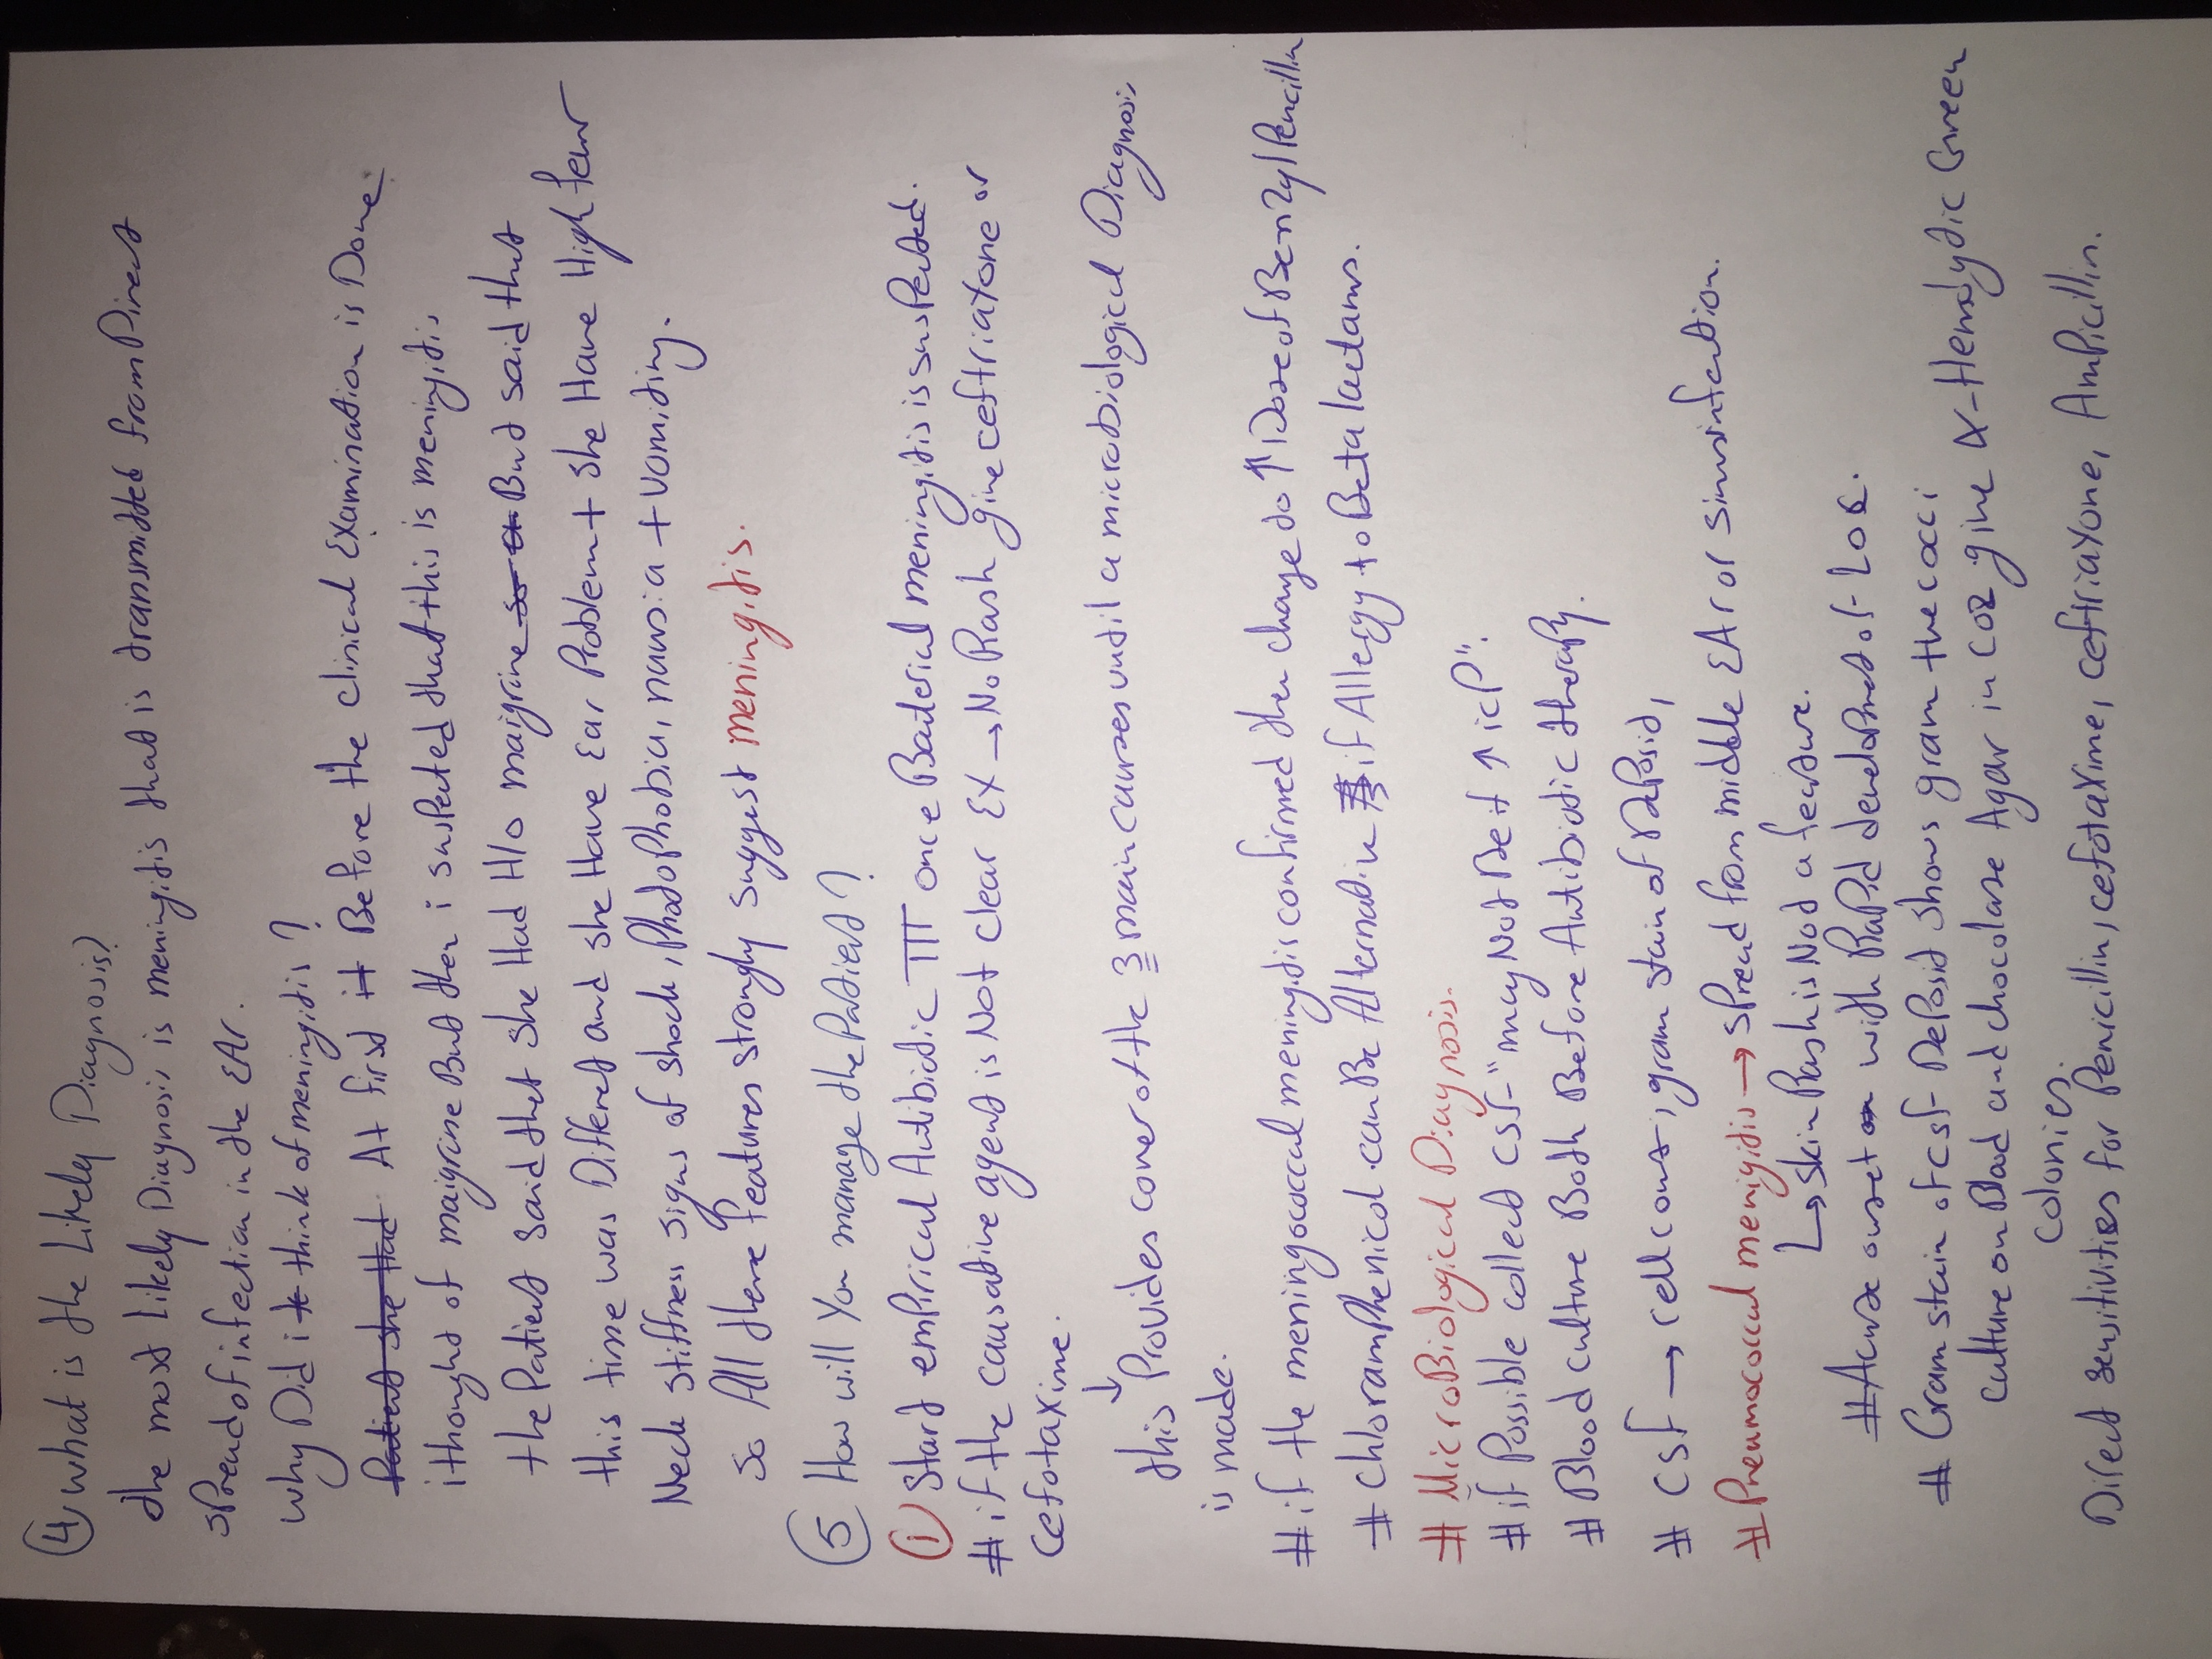 ④ what is the Likely Diagnosis?
the most Likely Diagnosis is meningitis that is transmitted from Direct
spread of infection in the EAr.
why Did i think of meningitis?
Patient she Had At first it Before the clinical Examination is Done
i thought of maigrine But then i suspected that this is meningitis
the Patient said that she Had H/o maigrine so But said that
this time was Different and she Have Ear Problem + she Have High fever
Neck stiffness signs of shock, Photophobia, nausia + vomiting.
so All these features strongly suggest meningitis.
⑤ How will You manage the Patient?
① Start empirical Antibiotic TTT once Bacterial meningitis is suspected.
# if the causative agent is Not clear EX → No Rash give ceftriaxone or
Cefotaxime.
↓
this Provides cover of the 3 main causes until a microbiological Diagnosis
is made.
# if the meningococcal meningitis confirmed then change to ↑ Dose of Benzyl Pencillin
# chloramphenicol can Be Alternativ if Allergy to Beta lactams.
# MicroBiological Diagnosis.
# if Possible collect CSF "may Not Be if ↑ icP".
# Blood culture Both Before Antibiotic therapy.
# CSF → cell count, gram stain of DePosit,
# Pneumococcal menigitis → spread from middle EAr or sinusinfection.
↳ skin Rash is Not a feature.
# Acute onset with RaPid develoPment of LOC.
# Gram stain of CSF DePosit shows gram +ve cocci
culture on Blood and chocolate Agar in CO2 give α-Hemolytic Green
colonies.
Direct sensitivities for Penicillin, cefotaxime, ceftriaxone, AmPicillin.